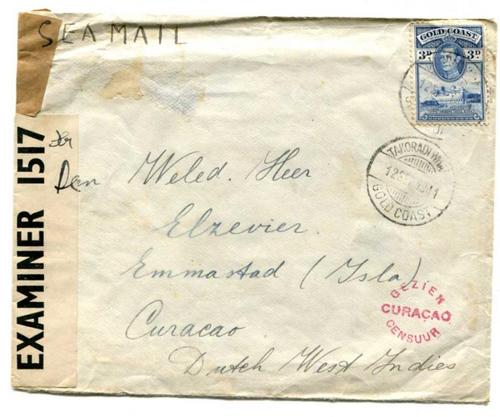 SEA MAIL
GOLD COAST
3D 3D
TAKORADI
GOLD COAST
EXAMINER 1517
Den Weled. Heer
Elzevier.
Emmastad (Isla)
Curacao
Dutch West Indies
GEZIEN
CURAÇAO
CENSUUR